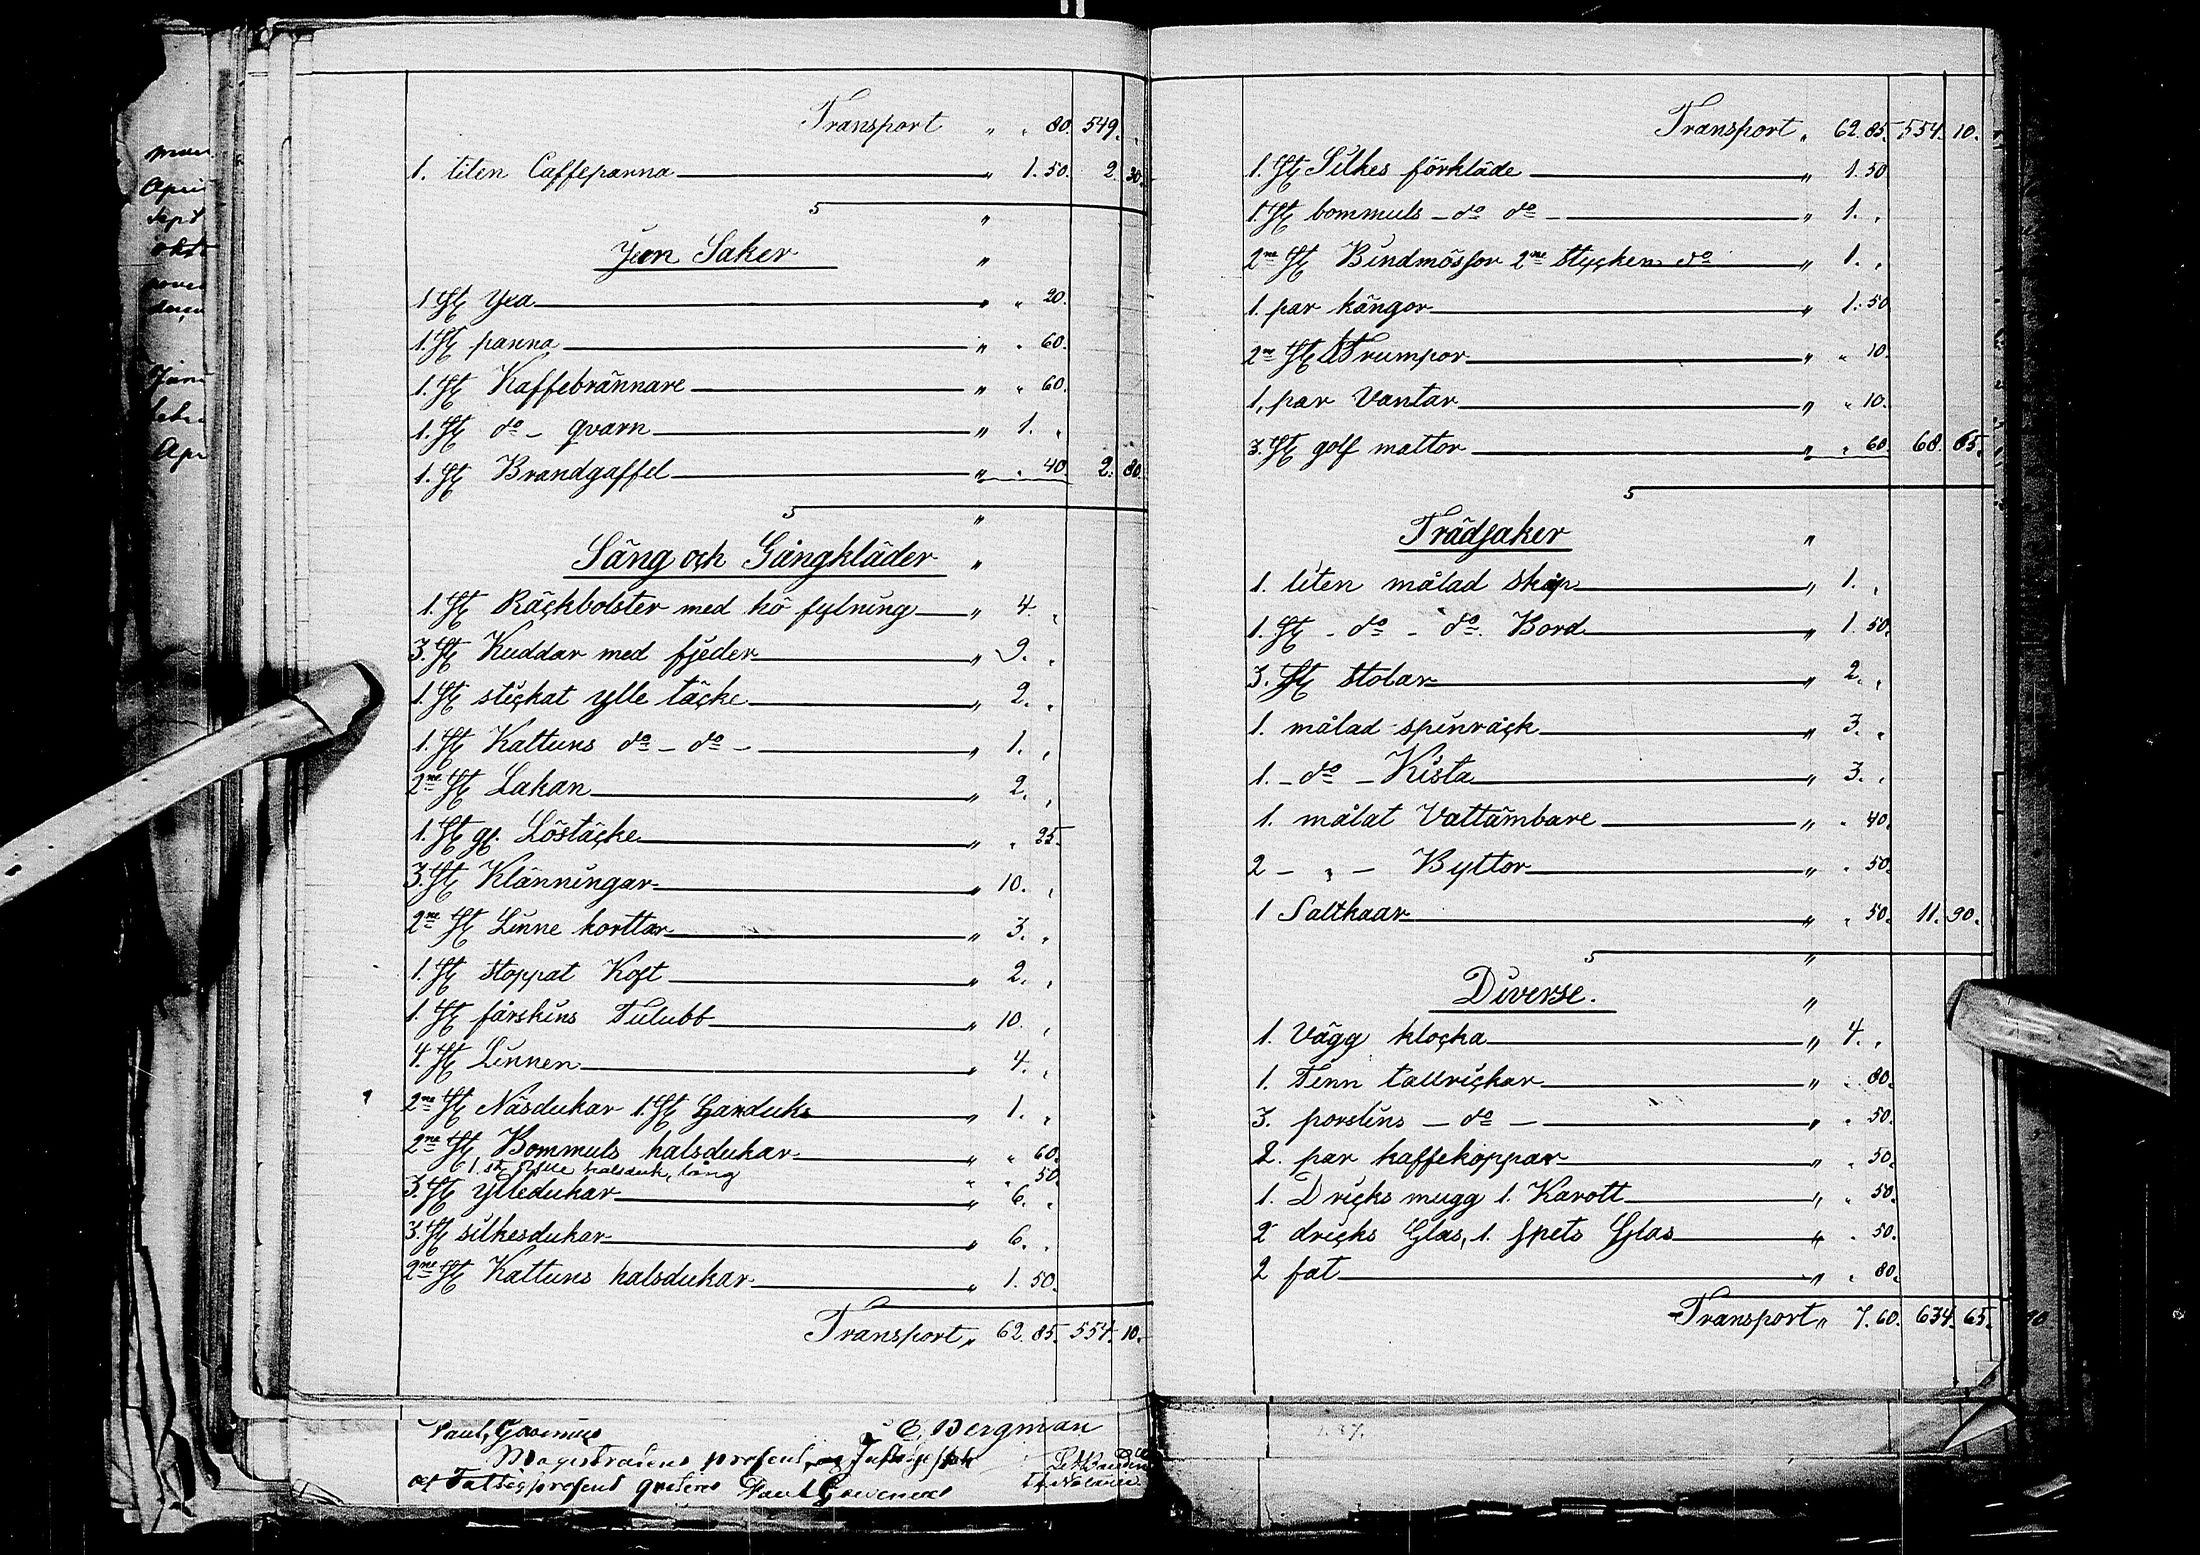 Transport " " 80. 549.
1. liten Caffepanna " 1. 50. 2. 30.
Jern Saker "
1 St Yxa " " 20.
1. St panna " " 60.
1. St Kaffebrännare " " 60.
1. St do - qvarn " 1. "
1. St Brandgaffel " " 40. 2. 80.
Säng och Gångkläder "
1. St Räckbolster med hö fylning " 4 "
3. St Kuddar med fjeder " 9. "
1. St stickat ylle täcke " 2. "
1. St Kattuns do - do - " 1. "
2ne St Lakan " 2. "
1. St gl. Löstäcke " " 25.
3. St Klänningar " 10. "
2ne St Linne korttar " 3. "
1. St stoppat Koft " 2. "
1. St fårskins Tulubb " 10. "
4. St Linnen " 4. "
2ne St Näsdukar 1. St Handuks " 1. "
2ne St Bommuls halsdukar " " 60.
1. st halsduk, lång " " 50.
3. St ylledukar " 6. "
3. St silkesdukar " 6. "
2ne St Kattuns halsdukar " 1. 50.
Transport " 62. 85. 554. 10.
E. Bergman
Transport " 62. 85. 554. 10.
1. St Silkes förkläde " 1. 50
1 St bommuls - do do - " 1. "
2ne St Bindmössor 2ne stycken do " 1. "
1. par kängor " 1. 50
2ne St Strumpor " " 10.
1. par Vantar " " 10.
3. St golf mattor " " 60. 68. 65.
Trädsaker "
1. liten målad skåp " 1. "
1. St - do - do. Bord " 1. 50.
3. St stolar " 2. "
1. målad spinråck " 3. "
1. - do - Kista " 3. "
1. målat Vattämbare " " 40.
2 - " - Byttor " " 50.
1 Saltkaar " " 50. 11. 90.
Diverse. "
1. Vägg klocka " 4. "
1. Tenn tallrickar " " 80.
3. porslins - do - " " 50.
2. par kaffekoppar " " 50.
1. Dricks mugg 1. Karott " " 50.
2 dricks Glas, 1. spets Glas " " 50.
2 fat " " 80.
Transport " 7. 60. 634. 65.